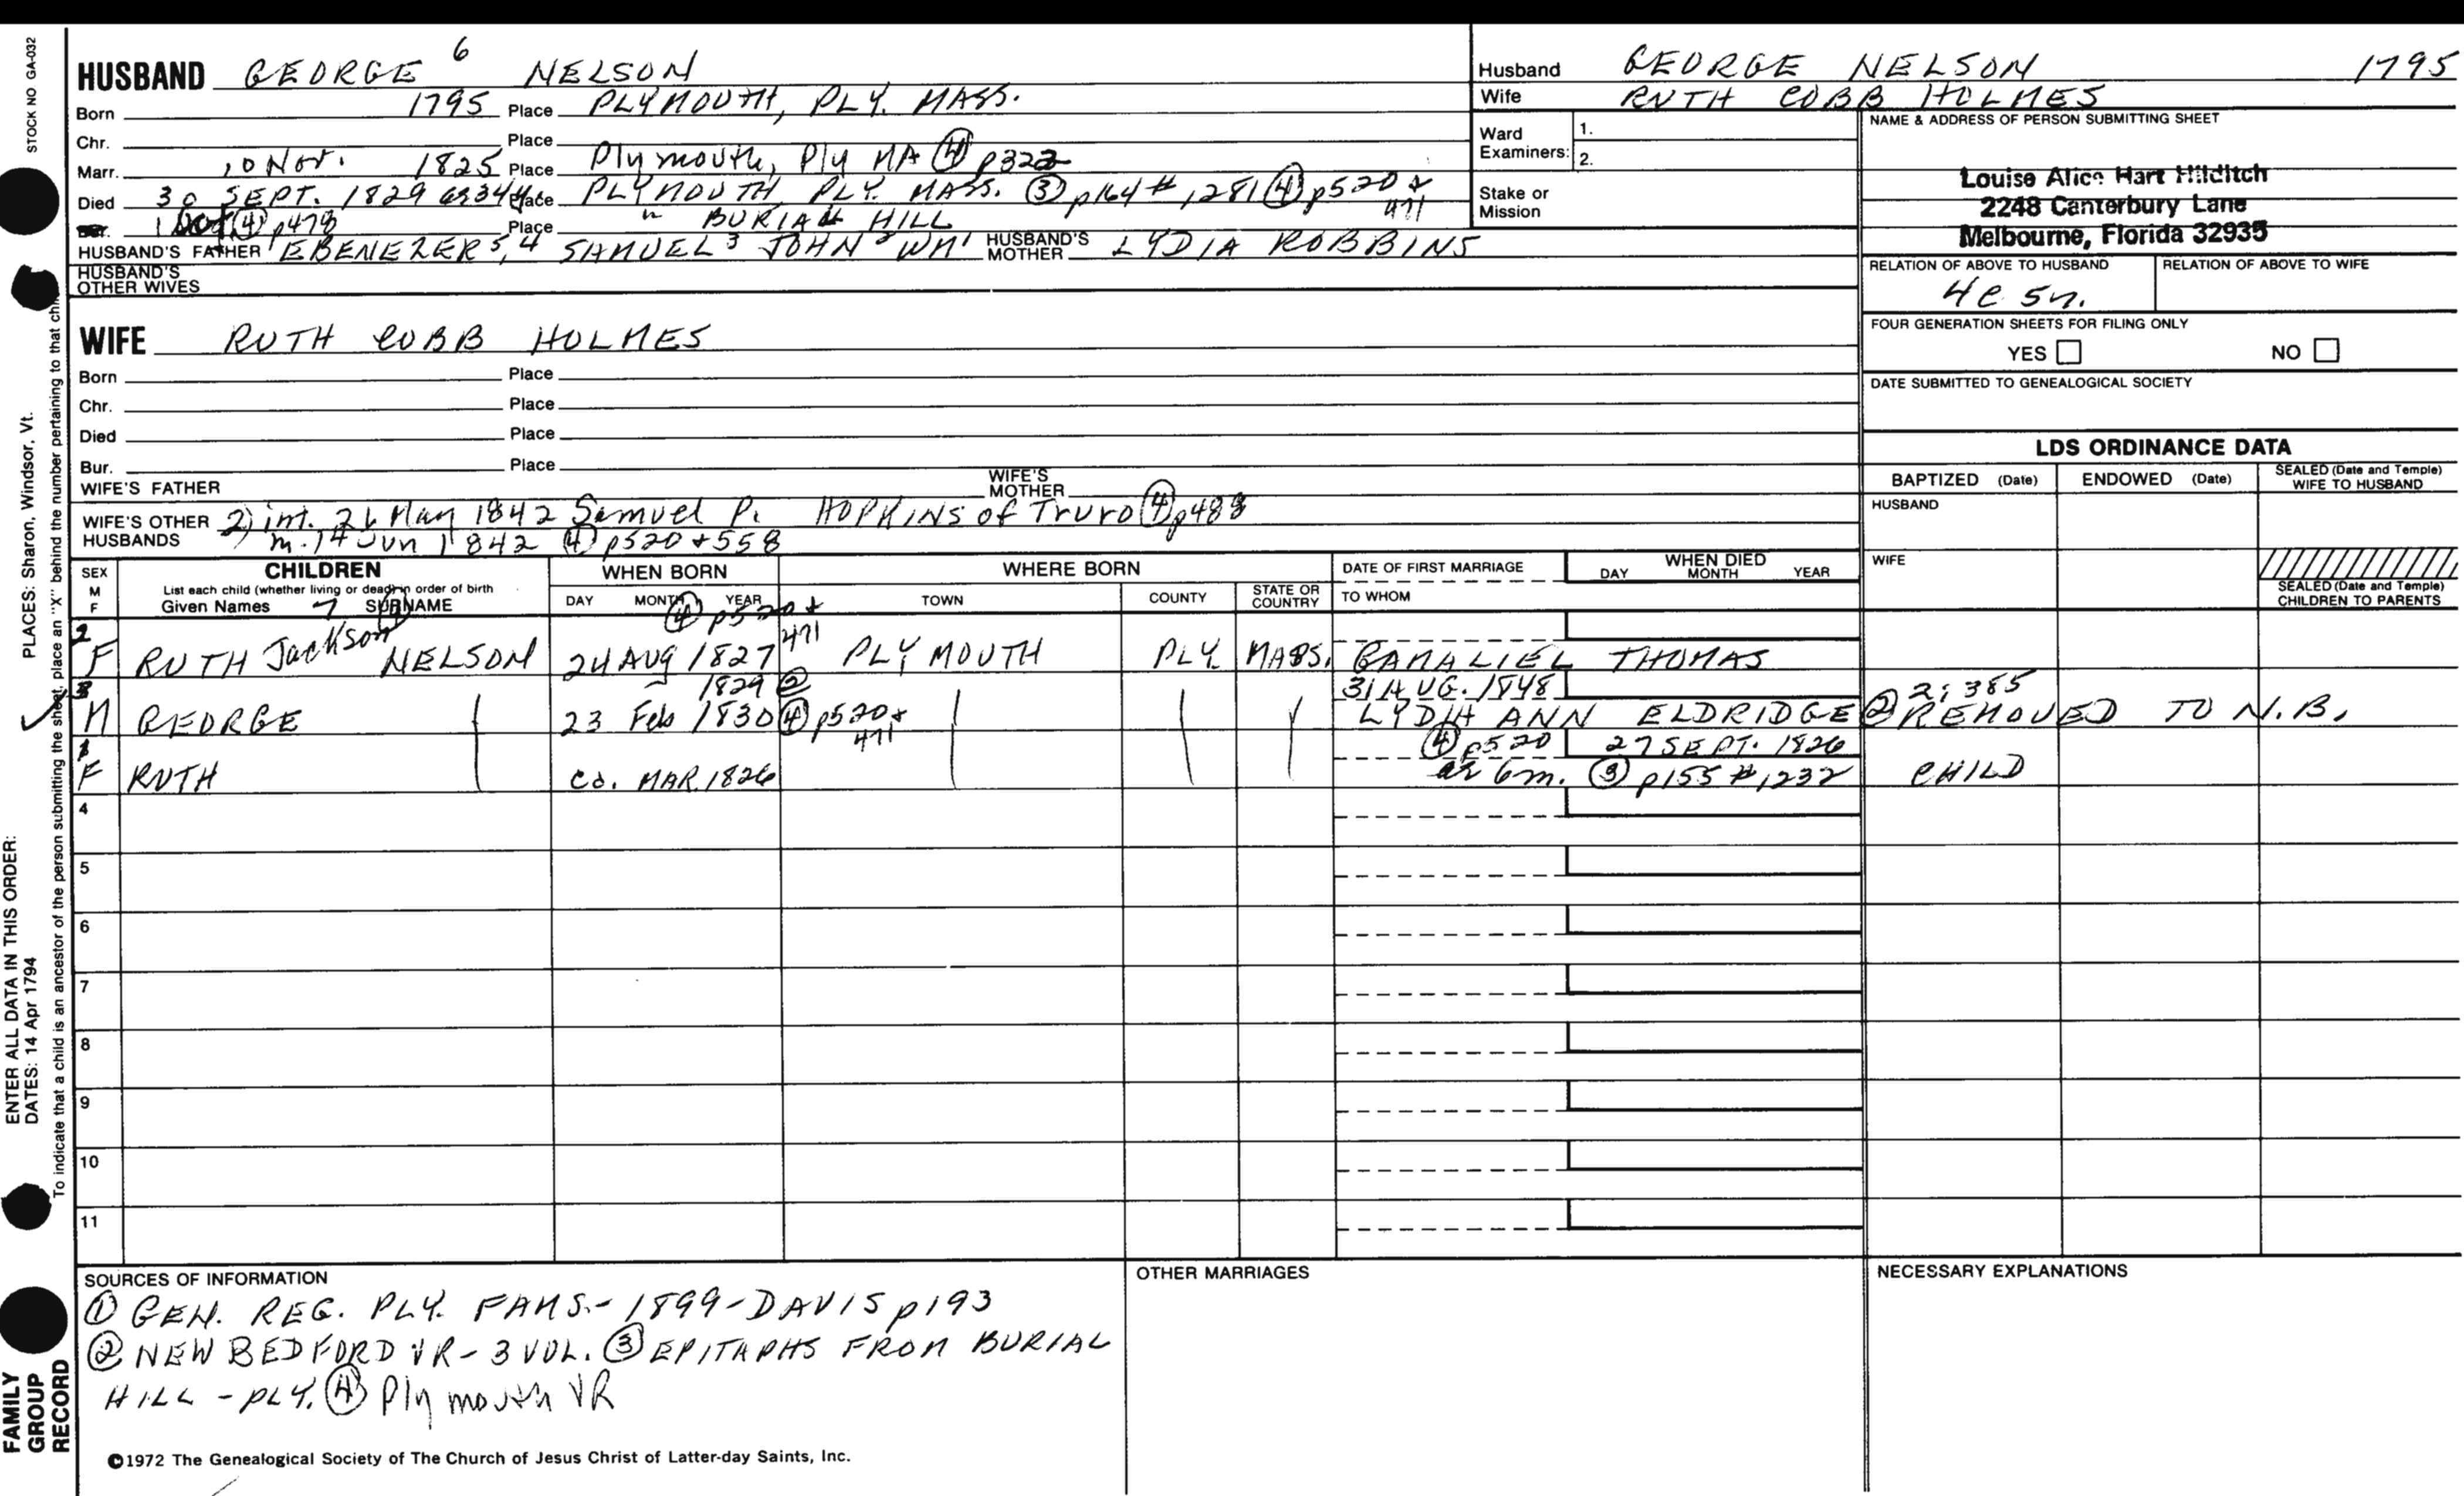 STOCK NO GA-032
HUSBAND GEORGE 6 NELSON
Born 1795 Place PLYMOUTH, PLY. MASS.
Chr. Place
Marr. 10 Nov. 1825 Place Plymouth, Ply MA ④ p322
Died 30 SEPT. 1829 Place PLYMOUTH PLY. MASS. ③ p164 # 1281 ④ p520 + 471
Bur. 1 Oct ④ p478 Place " BURIAL HILL
HUSBAND'S FATHER EBENEZER 5, 4 SAMUEL 3 JOHN 2 WM 1 HUSBAND'S MOTHER LYDIA ROBBINS
HUSBAND'S OTHER WIVES
WIFE RUTH COBB HOLMES
Born Place
Chr. Place
Died Place
Bur. Place
WIFE'S FATHER WIFE'S MOTHER
WIFE'S OTHER HUSBANDS 2) int. 21 May 1842 Samuel P. HOPKINS of Truro ④ p488
m. 14 Jun 1842 ④ p520 + 558
Husband GEORGE NELSON 1795
Wife RUTH COBB HOLMES
Ward Examiners: 1.
2.
Stake or Mission
NAME & ADDRESS OF PERSON SUBMITTING SHEET
Louise Alice Hart Hilditch
2248 Canterbury Lane
Melbourne, Florida 32935
RELATION OF ABOVE TO HUSBAND RELATION OF ABOVE TO WIFE
4c 5r.
FOUR GENERATION SHEETS FOR FILING ONLY
YES NO
DATE SUBMITTED TO GENEALOGICAL SOCIETY
LDS ORDINANCE DATA
BAPTIZED (Date) ENDOWED (Date) SEALED (Date and Temple) WIFE TO HUSBAND
HUSBAND
WIFE
SEALED (Date and Temple) CHILDREN TO PARENTS
SEX M F CHILDREN WHEN BORN WHERE BORN DATE OF FIRST MARRIAGE WHEN DIED
List each child (whether living or dead) in order of birth
Given Names 7 SURNAME DAY MONTH YEAR TOWN COUNTY STATE OR COUNTRY TO WHOM DAY MONTH YEAR
④ p520 + 471
2 F RUTH Jackson NELSON 24 AUG 1827 PLYMOUTH PLY. MASS. GAMALIEL THOMAS
3 1829 ② 31 AUG. 1848 2; 385
M GEORGE 23 Feb 1830 ④ p520 + 471 LYDIA ANN ELDRIDGE ② REMOVED TO N.B.
1 ④ p520 27 SEPT. 1826
F RUTH ca. MAR. 1826 ae 6m. ③ p155 # 1232 CHILD
4
5
6
7
8
9
10
11
SOURCES OF INFORMATION
① GEN. REG. PLY. FAMS. - 1899 - DAVIS p193
② NEW BEDFORD VR - 3 VOL. ③ EPITAPHS FROM BURIAL
HILL - PLY. ④ Plymouth VR
OTHER MARRIAGES
NECESSARY EXPLANATIONS
©1972 The Genealogical Society of The Church of Jesus Christ of Latter-day Saints, Inc.
ENTER ALL DATA IN THIS ORDER:
DATES: 14 Apr 1794
PLACES: Sharon, Windsor, Vt.
To indicate that a child is an ancestor of the person submitting the sheet, place an "X" behind the number pertaining to that
FAMILY
GROUP
RECORD